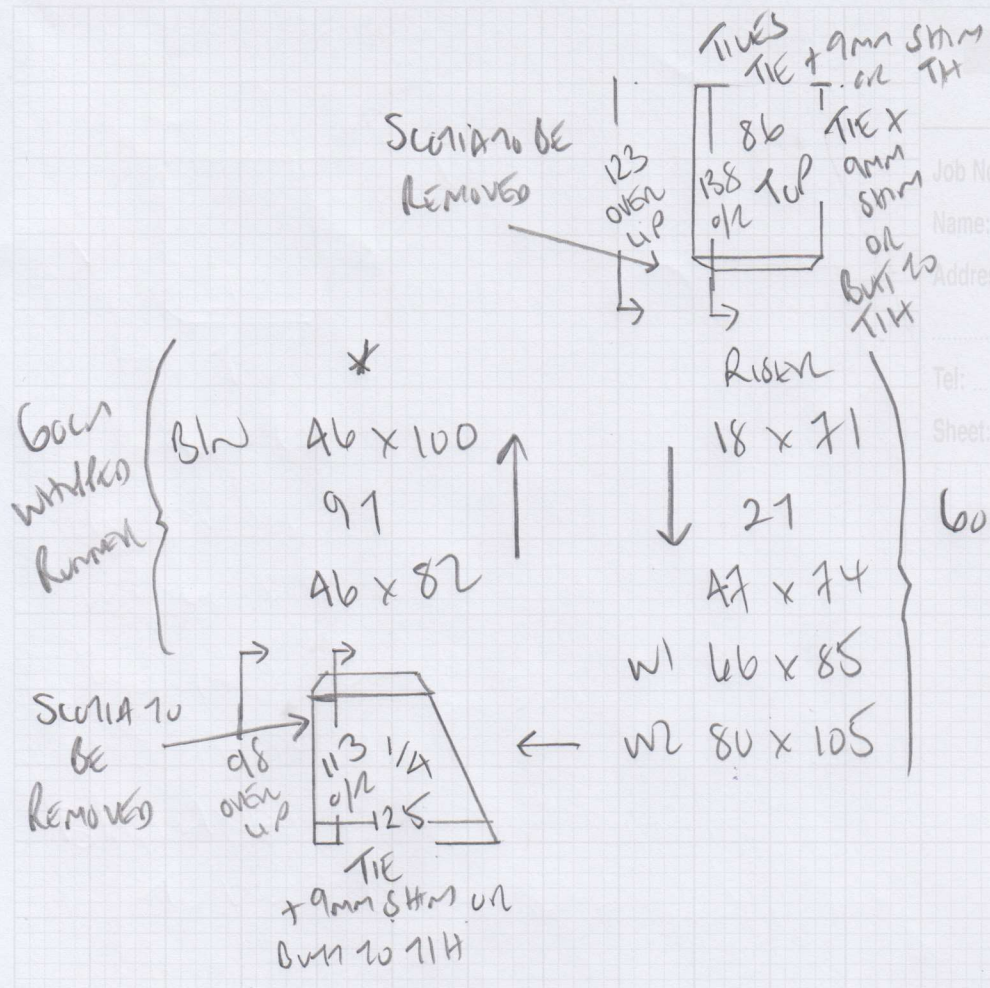 TILES
TIE + 9mm SHIM
OR TH
SCOTIA TO BE
REMOVED
123
OVER
LIP
138
O/R
86
TOP
TIE X
9mm
SHIM
OR
BUTT TO
TIH
Job No
Name:
Addre
Tel:
Sheet:
*
RISER
60cm
WHIPPED
RUNNER
B/N 46 x 100
18 x 71
91
21
60
46 x 82
47 x 74
W1 66 x 85
W2 80 x 105
SCOTIA TO
BE
REMOVED
98
OVER
LIP
113
O/R
1/4
125
TIE
+ 9mm SHIM OR
BUTT TO TIH